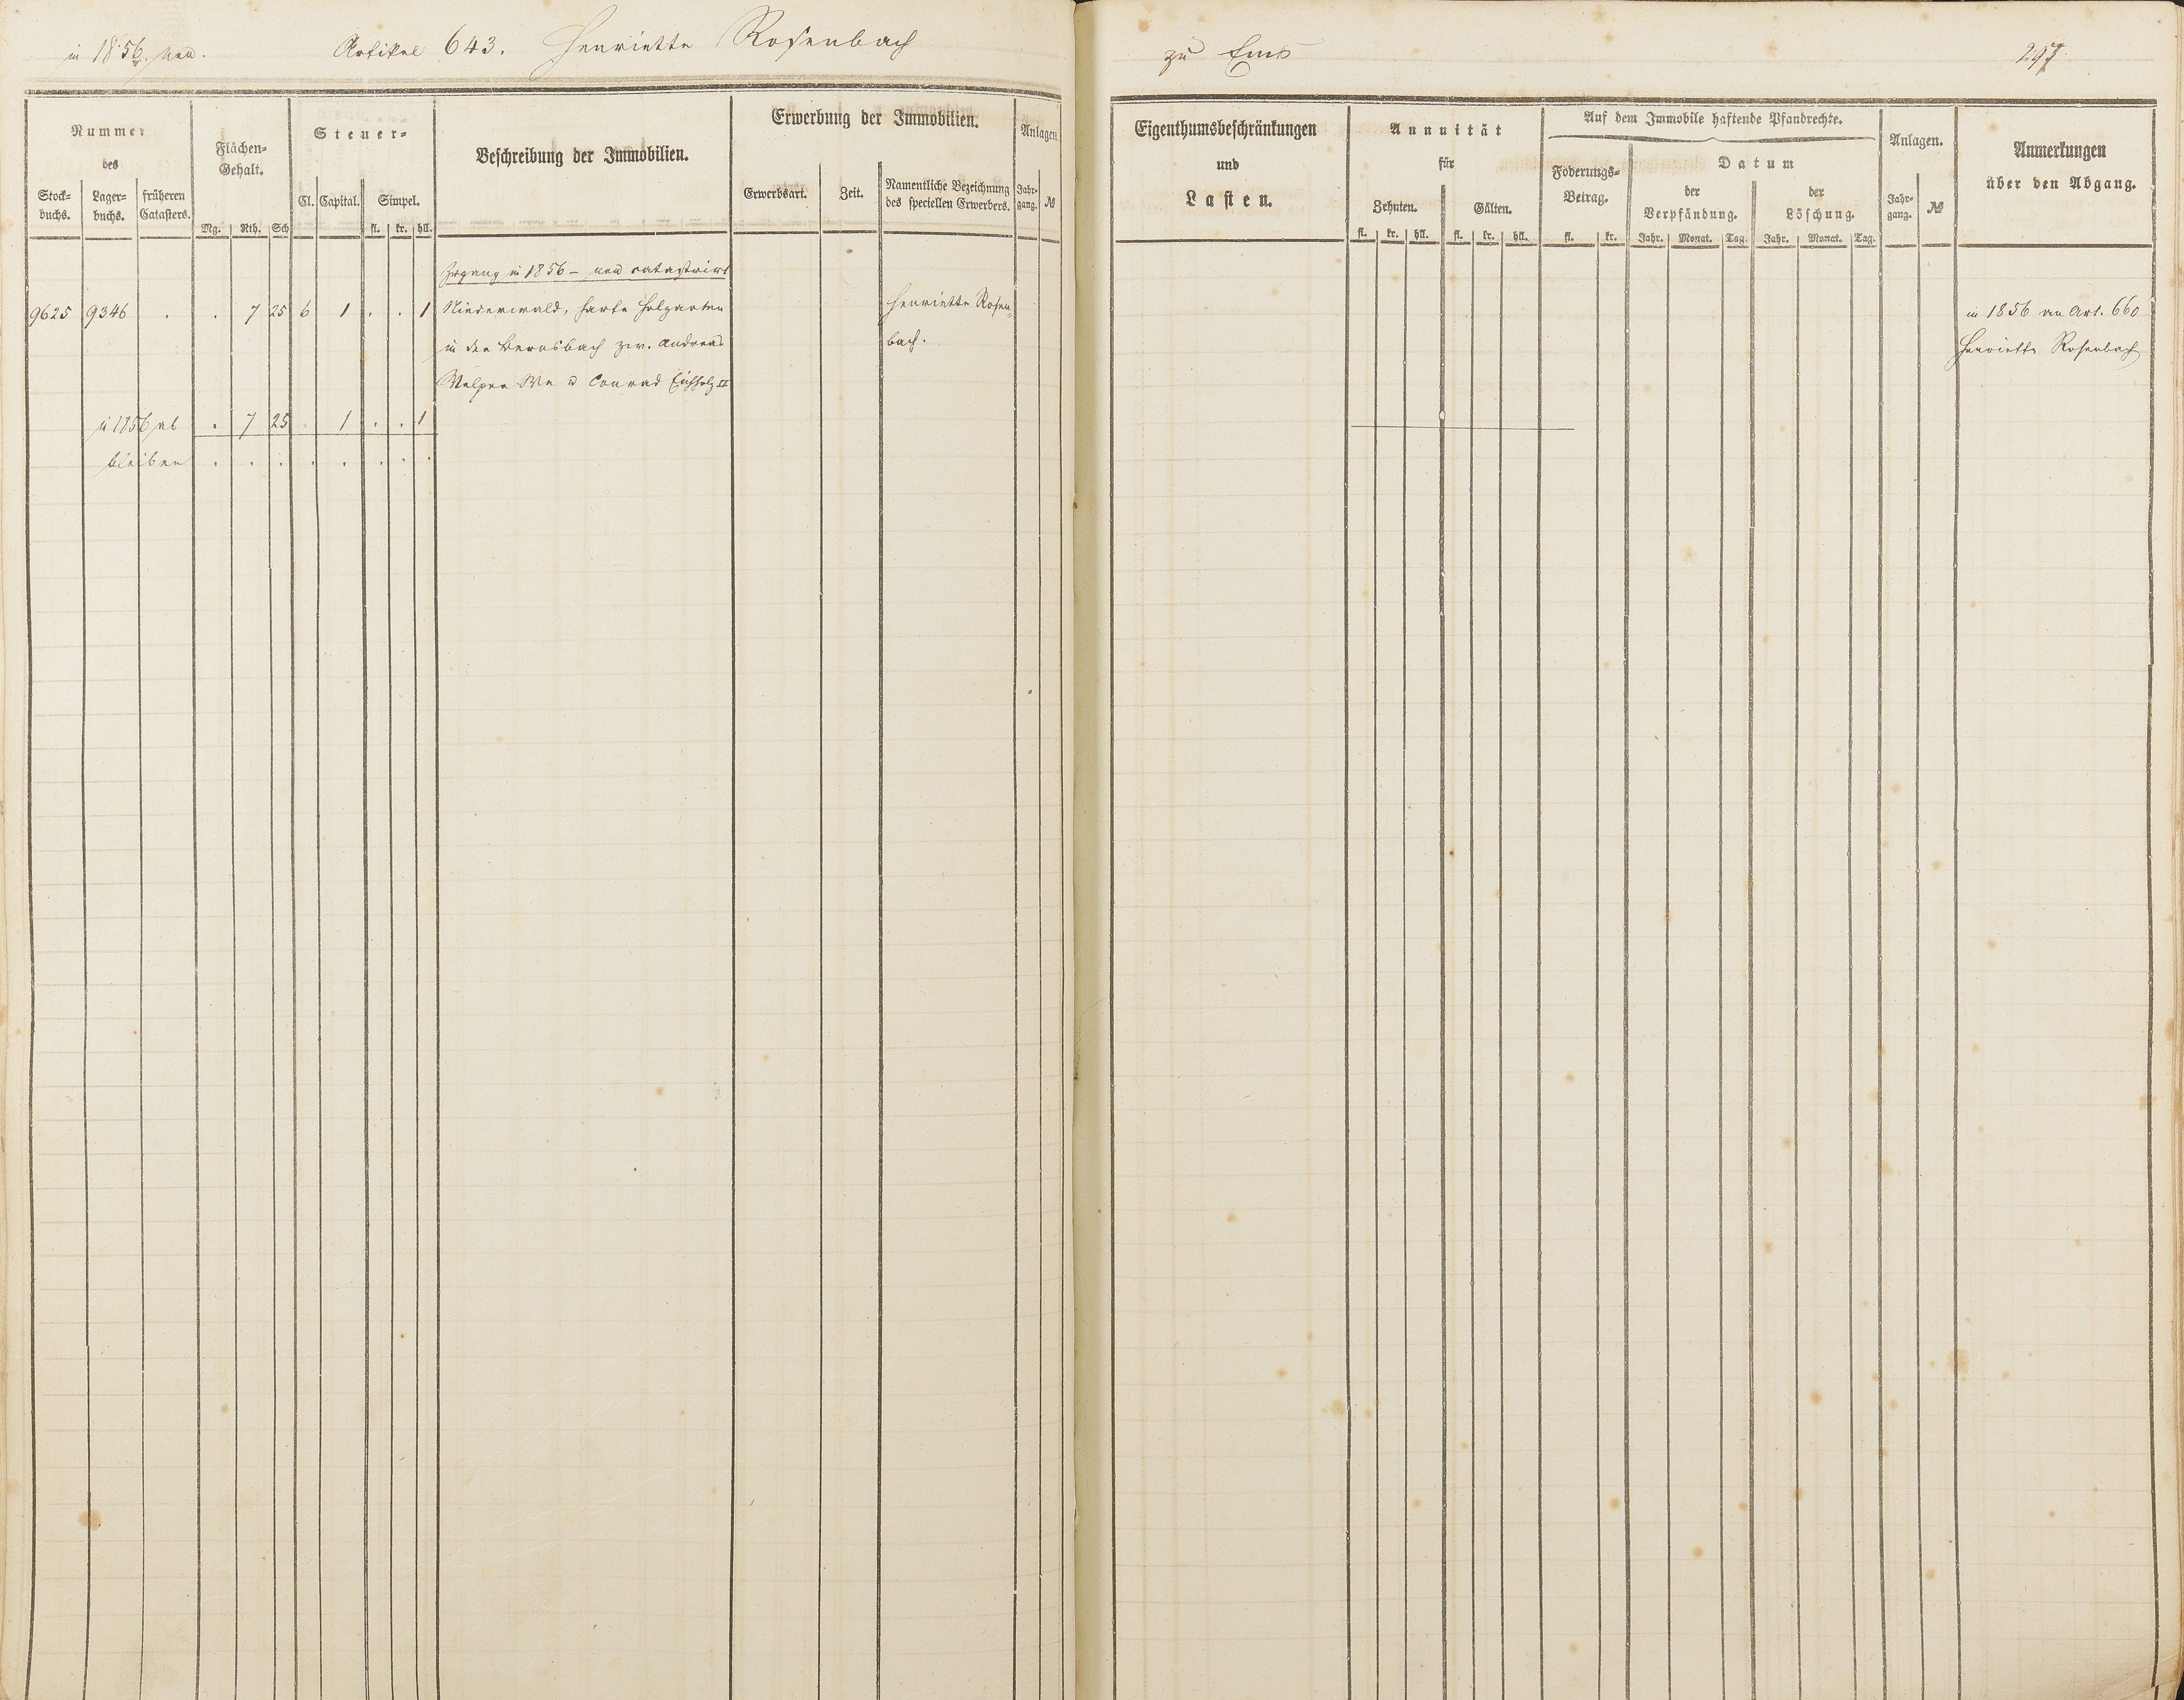 in 1856 neu.
Artikel 643. Henriette Rosenbach
Nummer
des
Stock-
buchs.
Lager-
buchs.
früheren
Catasters.
Flächen-
Gehalt.
Mg. Rth. Sch
Steuer-
Cl. Capital. Simpel.
fl. kr. hll.
Beschreibung der Immobilien.
Erwerbung der Immobilien.
Erwerbsart. Zeit.
Namentliche Bezeichnung
des speciellen Erwerbers.
Anlagen.
Jahr-
gang. №
Zugang in 1856 – neu catastrirt
9625 9346 . . 7 25 6 1 . . 1 Niederwald, Henriette Rosen-
in der Bernsbach zw. Andreas bach.
We u Conrad Eichholz II
in 1856 ab . 7 25 . 1 . . 1
bleiben . . . . . . . .
zu Ems
Eigenthumsbeschränkungen
und
Lasten.
Annuität
für
Zehnten. Gülten.
fl. kr. hll. fl. kr. hll.
Auf dem Immobile haftende Pfandrechte.
Foderungs-
Betrag.
fl. kr.
Datum
der
Verpfändung.
der
Löschung.
Jahr. Monat. Tag. Jahr. Monat. Tag.
Anlagen.
Jahr-
gang. №
Anmerkungen
über den Abgang.
in 1856 an Art. 660
Henriette Rosenbach